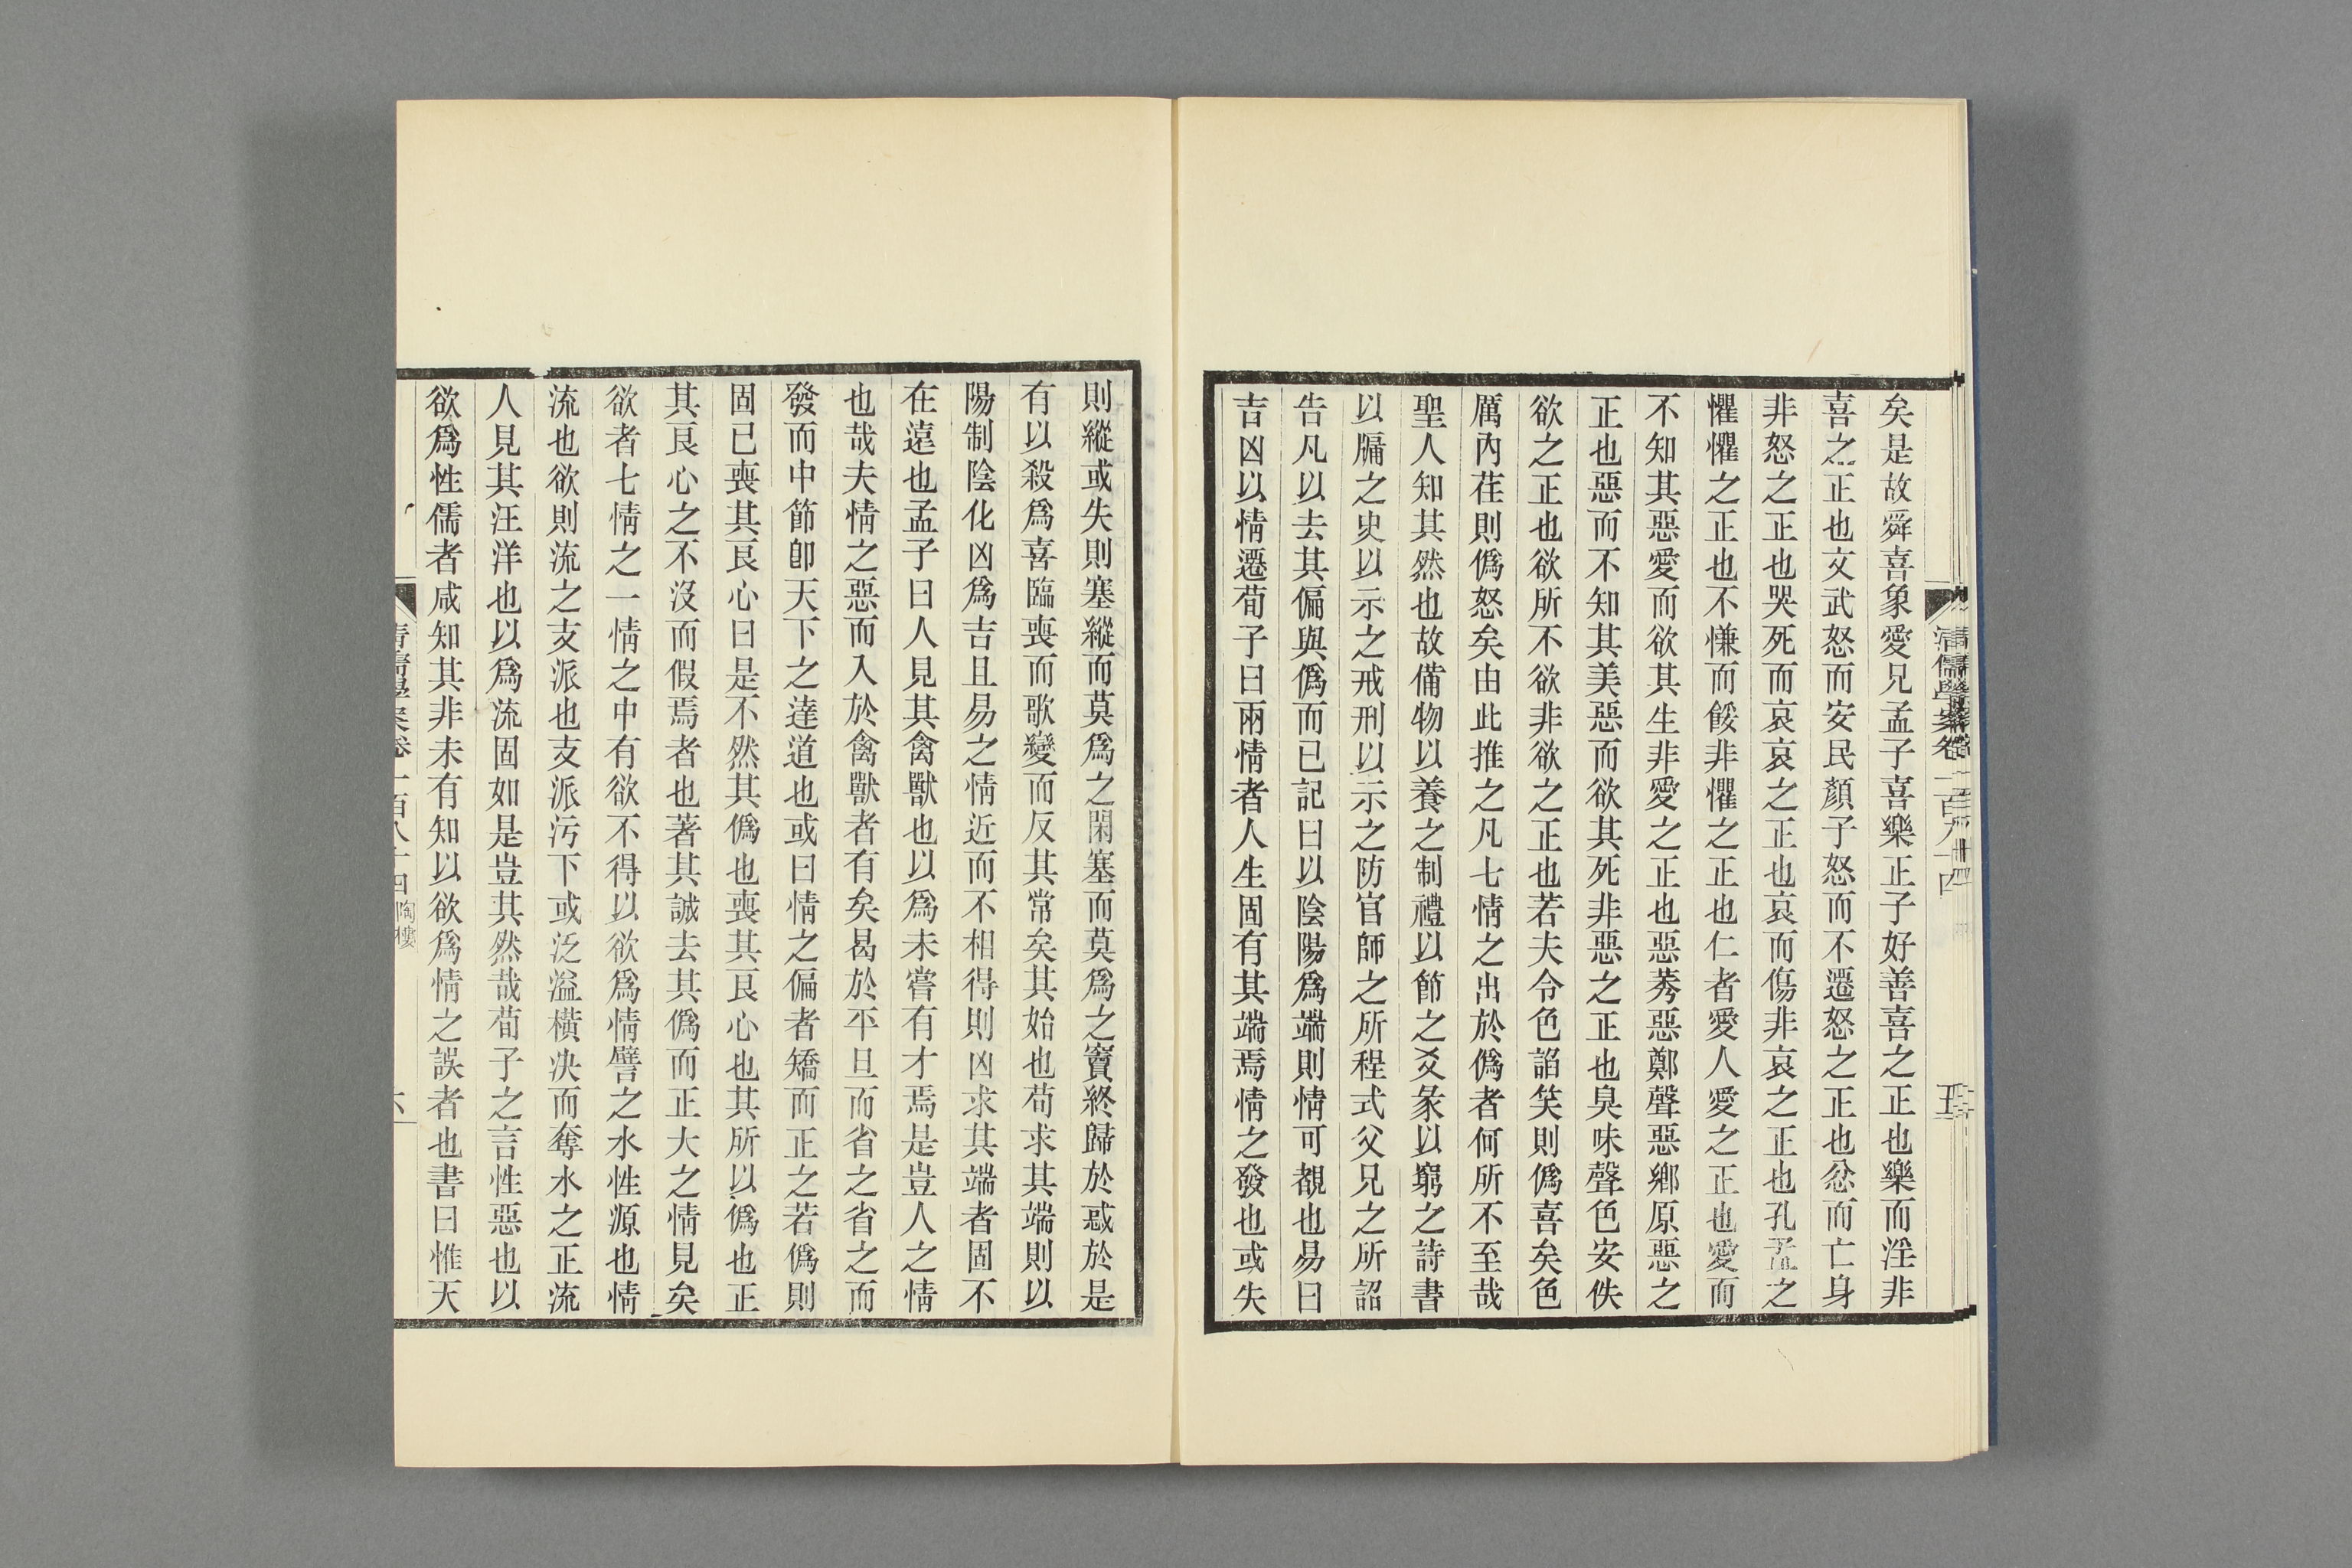 矣是故舜喜象愛兄孟子喜樂正子好善喜之正也樂而淫非
喜之正也文武怒而安民顏子怒而不遷怒之正也忿而亡身
非怒之正也哭死而哀哀之正也哀而傷非哀之正也孔孟之
懼懼之正也不慊而餒非懼之正也仁者愛人愛之正也愛而
不知其惡愛而欲其生非愛之正也惡莠惡鄭聲惡鄉原惡之
正也惡而不知其美惡而欲其死非惡之正也臭味聲色安佚
欲之正也欲所不欲非欲之正也若夫令色諂笑則僞喜矣色
厲內荏則僞怒矣由此推之凡七情之出於僞者何所不至哉
聖人知其然也故備物以養之制禮以節之爻彖以窮之詩書
以牖之史以示之戒刑以示之防官師之所程式父兄之所詔
告凡以去其偏與僞而已記曰以陰陽爲端則情可覩也易曰
吉凶以情遷荀子曰兩情者人生固有其端焉情之發也或失
清儒學案卷一百八十四
五
則縱或失則塞縱而莫爲之閑塞而莫爲之竇終歸於惑於是
有以殺爲喜臨喪而歌變而反其常矣其始也苟求其端則以
陽制陰化凶爲吉且易之情近而不相得則凶求其端者固不
在遠也孟子曰人見其禽獸也以爲未嘗有才焉是豈人之情
也哉夫情之惡而入於禽獸者有矣曷於平旦而省之省之而
發而中節卽天下之達道也或曰情之偏者矯而正之若僞則
固已喪其良心曰是不然其僞也喪其良心也其所以僞也正
其良心之不沒而假焉者也著其誠去其僞而正大之情見矣
欲者七情之一情之中有欲不得以欲爲情譬之水性源也情
流也欲則流之支派也支派污下或泛溢橫決而奪水之正流
人見其汪洋也以爲流固如是豈其然哉荀子之言性惡也以
欲爲性儒者咸知其非未有知以欲爲情之誤者也書曰惟天